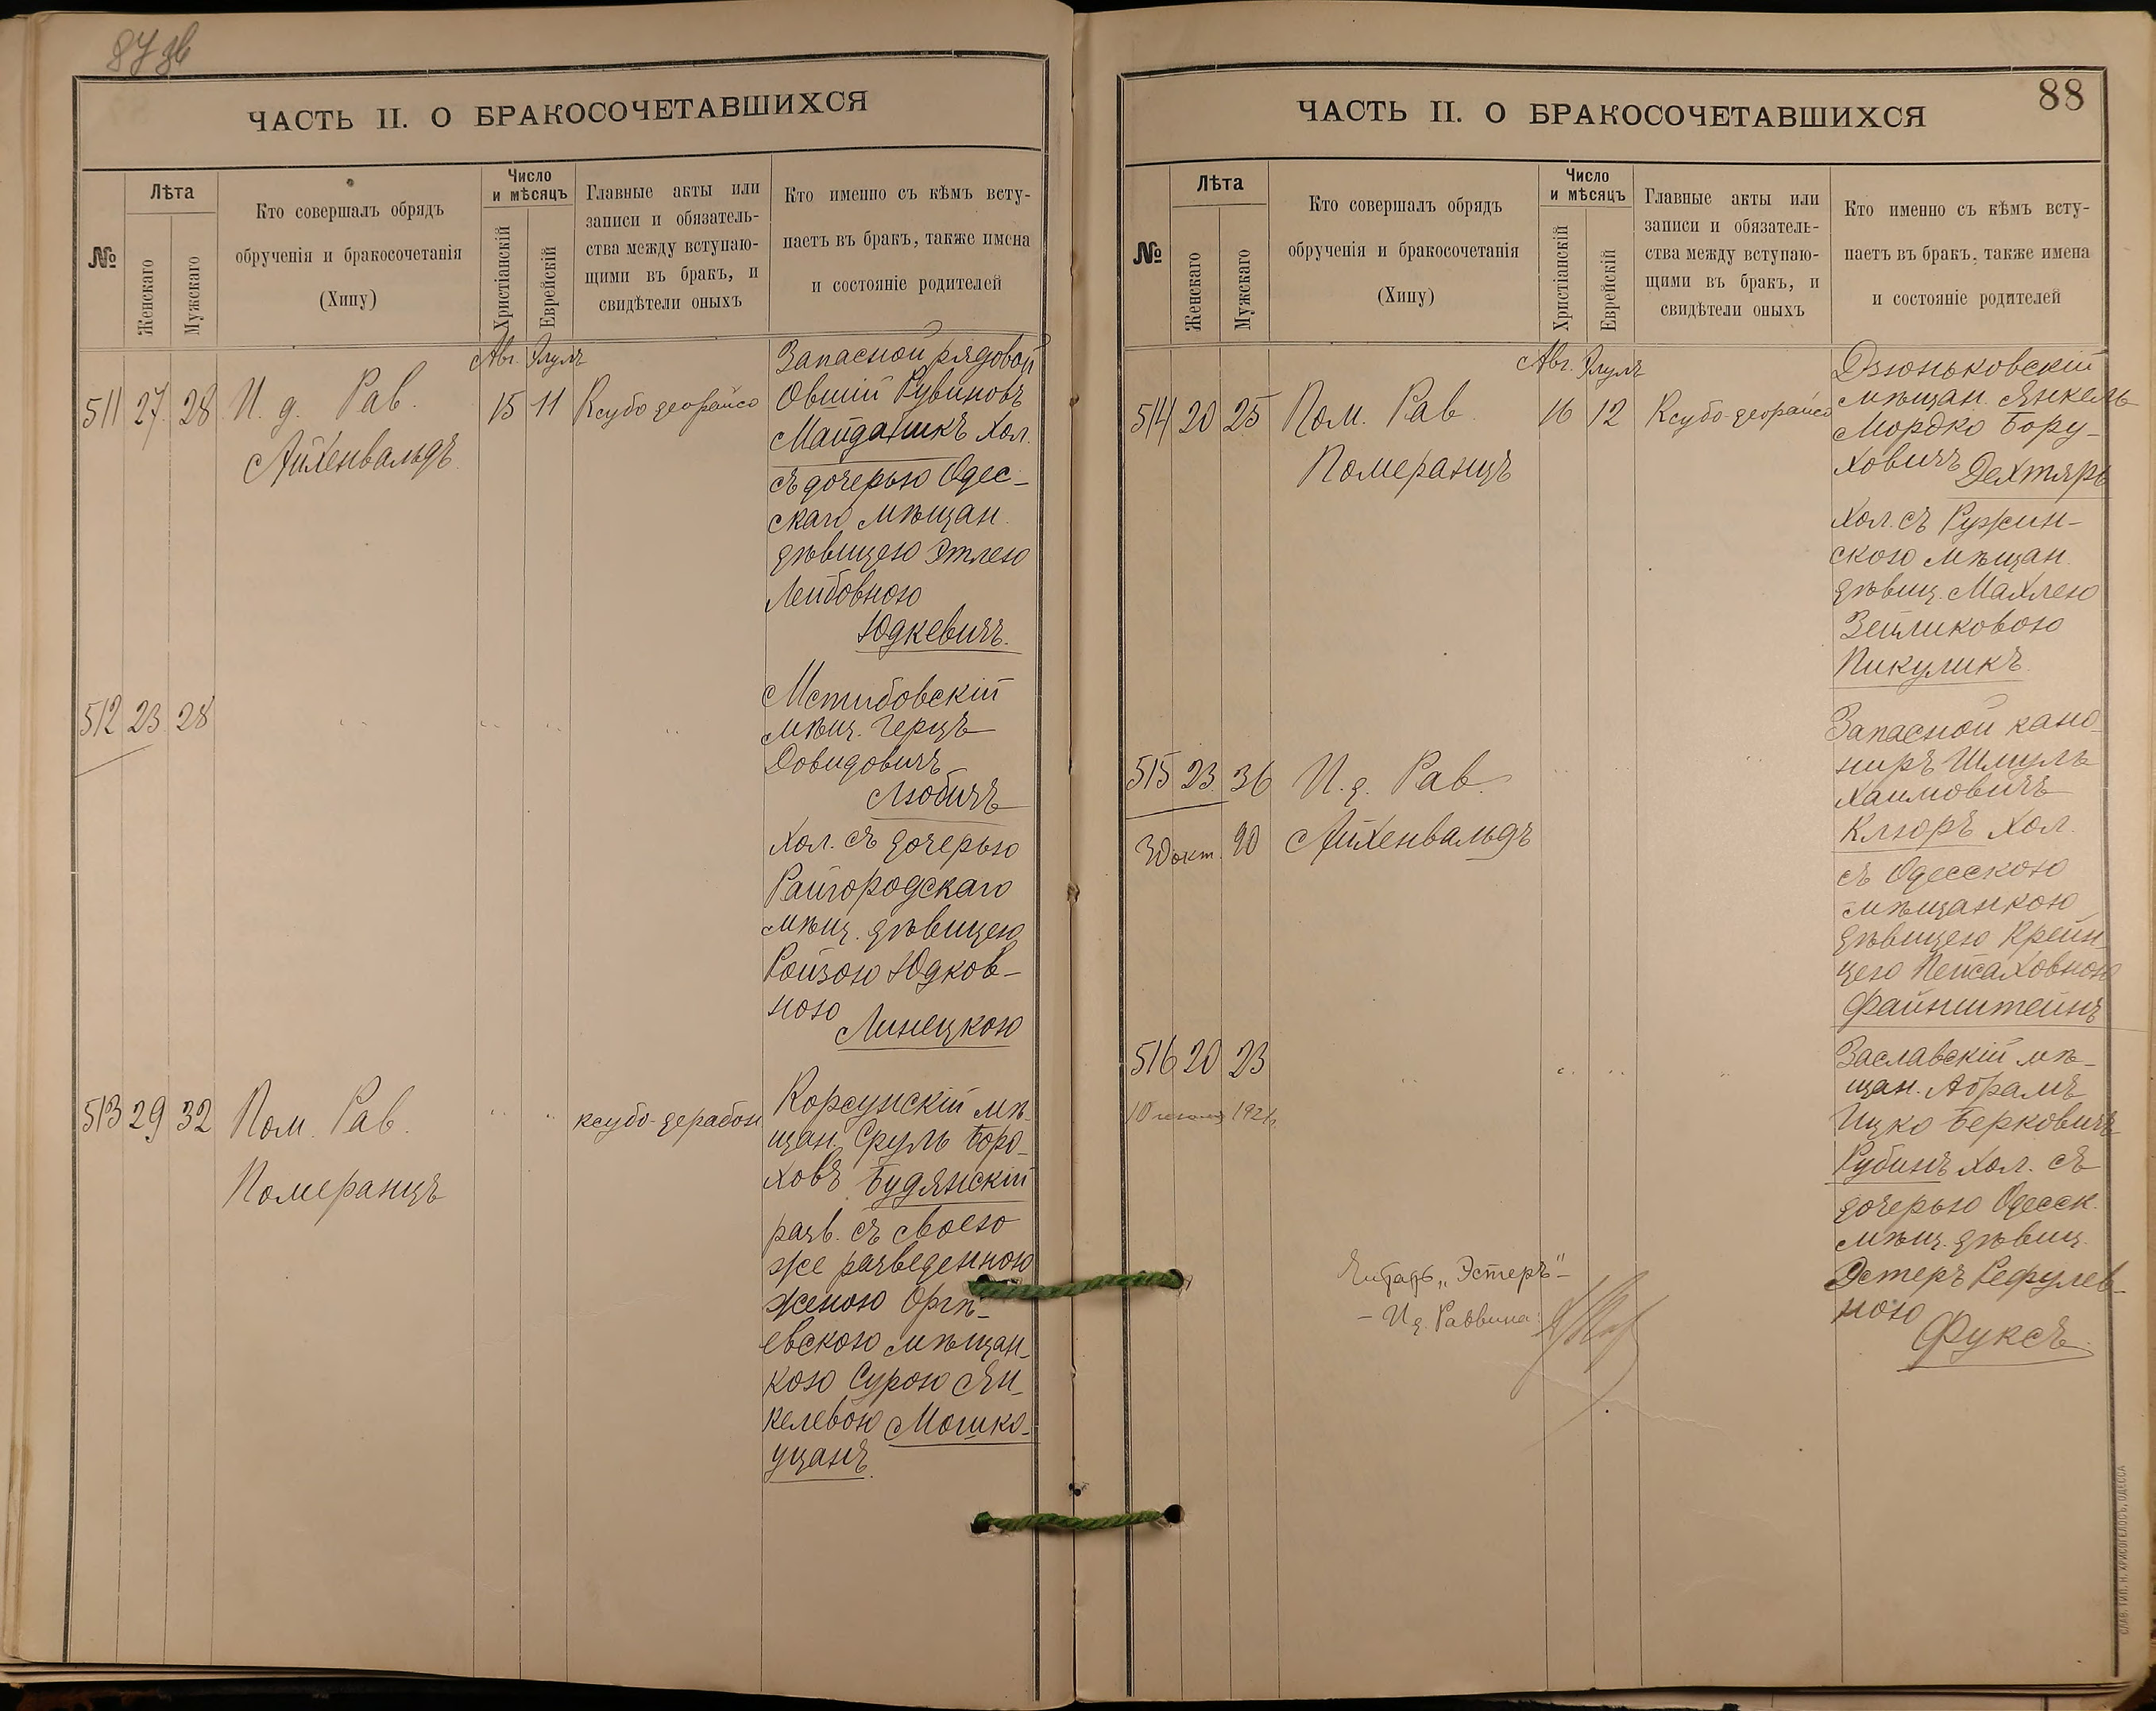 87 об
ЧАСТЬ II. О БРАКОСОЧЕТАВШИХСЯ
№
Лѣта
Женскаго
Мужскаго
Кто совершалъ обрядъ
обрученія и бракосочетанія
(Хипу)
Число
и мѣсяцъ
Христіанскій
Еврейскій
Главные акты или
записи и обязатель-
ства между вступаю-
щими въ бракъ, и
свидѣтели оныхъ
Кто именно съ кѣмъ всту-
паетъ въ бракъ, также имена
и состояніе родителей
Авг. Элулъ
511 27 28 И. д. Рав. 15 11 Ксубо деорайсо
Айхенвальдъ
Запасной рядовой
Овшій Рувиновъ
Майданикъ Хол.
съ дочерью Одес-
скаго мѣщан.
дѣвицею Этлею
Лейбовною
Юдкевичъ.
512 23 28 " " " "
Мстибовскій
мѣщ. Герцъ
Довидовичъ
Любичъ
Хол. съ дочерью
Райгородскаго
мѣщ. дѣвицею
Ройзою Юдков-
ною
Линецкою
513 29 32 Пом. Рав. " " ксубо-дерабон
Померанцъ
Корсунскій мѣ-
щан. Сруль Боро-
ховъ Будянскій
разв. съ своею
же разведенною
женою Оргѣ-
евскою мѣщан-
кою Сурою Ян-
келевою Мошко-
уцанъ.
88
ЧАСТЬ II. О БРАКОСОЧЕТАВШИХСЯ
№
Лѣта
Женскаго
Мужскаго
Кто совершалъ обрядъ
обрученія и бракосочетанія
(Хипу)
Число
и мѣсяцъ
Христіанскій
Еврейскій
Главные акты или
записи и обязатель-
ства между вступаю-
щими въ бракъ, и
свидѣтели оныхъ
Кто именно съ кѣмъ всту-
паетъ въ бракъ, также имена
и состояніе родителей
Авг. Элулъ
514 20 25 Пом. Рав. 16 12 Ксубо-деорайсо
Померанцъ
Дзюньковскій
мѣщан. Янкель
Мордко Бору-
ховичъ Дехтярь
Хол. съ Ружин-
скою мѣщан.
дѣвиц. Махлею
Зейликовою
Пикуликъ.
515 23 36 И. д. Рав. " " "
30 окт. 20 Айхенвальдъ
Запасной кано-
ниръ Шмуль
Хаимовичъ
Клюръ Хол.
съ Одесскою
мѣщанкою
дѣвицею Крейн-
цею Пейсаховною
Файнштейнъ
516 20 23 " " " "
1921
Заславскій мѣ-
щан. Абрамъ
Ицко Берковичъ
Рубинъ Хол. съ
дочерью Одесск.
мѣщ. дѣвиц.
Эстеръ Рефулев-
ною
Фуксъ.
„Эстеръ"-
- И д. Раввина:
СЛАВ. ТИП. Н. ХРИСОГЕЛОСЪ, ОДЕССА